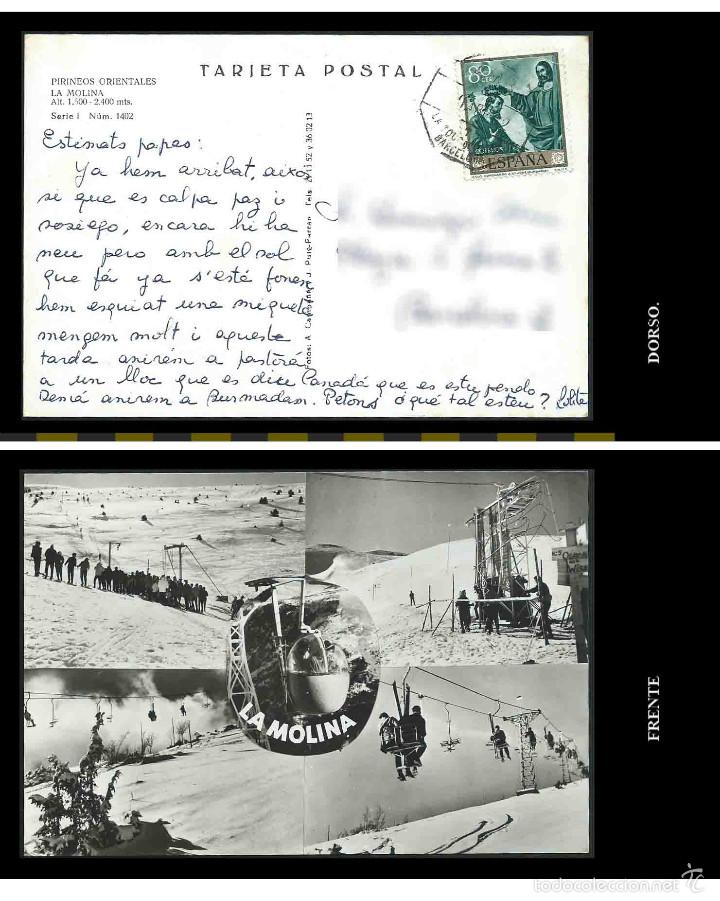 TARJETA POSTAL
PIRINEOS ORIENTALES
LA MOLINA
Alt. 1,500 - 2.400 mts.
Serie I Núm. 1402
80
CTS
ESPAÑA
BARCELONA
Estimats papas:
Ya hem arribat, aixo
si que es calpa paz i
sosiego, encara hi ha
neu pero amb el sol
que fá ya s'esté fonen
hem esquiat une miqueta
mengem molt i aqueste
tarda anirem a pastirá
a un lloc que es dise Canadá que es estupendo
Demá anirem a Burmadam. Petons o que tal esteu? Lolita
Fotos: A. Campañá y J. Puig-Ferrán Tels. 21 11 52 y 36 02 13
DORSO.
LA MOLINA
FRENTE
todocoleccion.net